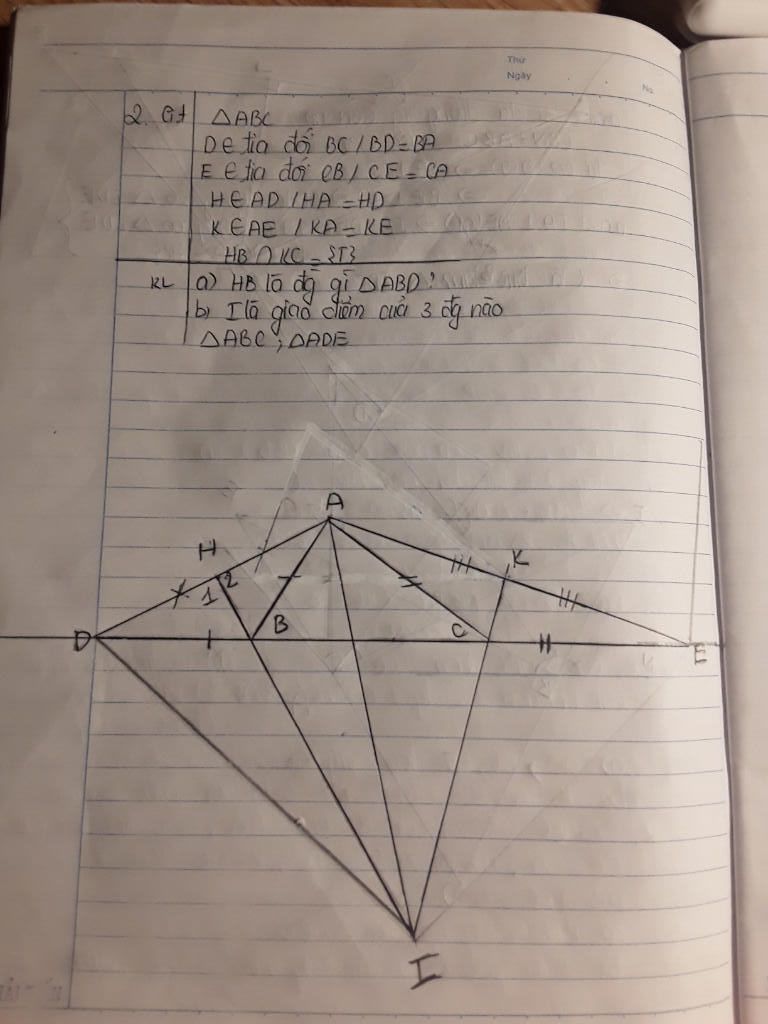 Thứ
Ngày
No.
2. Gt △ABC
D∈ tia đối BC / BD = BA
E ∈ tia đối CB / CE = CA
H∈AD / HA = HD
K∈AE / KA = KE
HB ∩ KC = {I}
KL a) HB là đg gì △ABD?
b) I là giao điểm cuả 3 đg nào
△ABC ; △ADE
A
H
K
1 2
D B C E
I